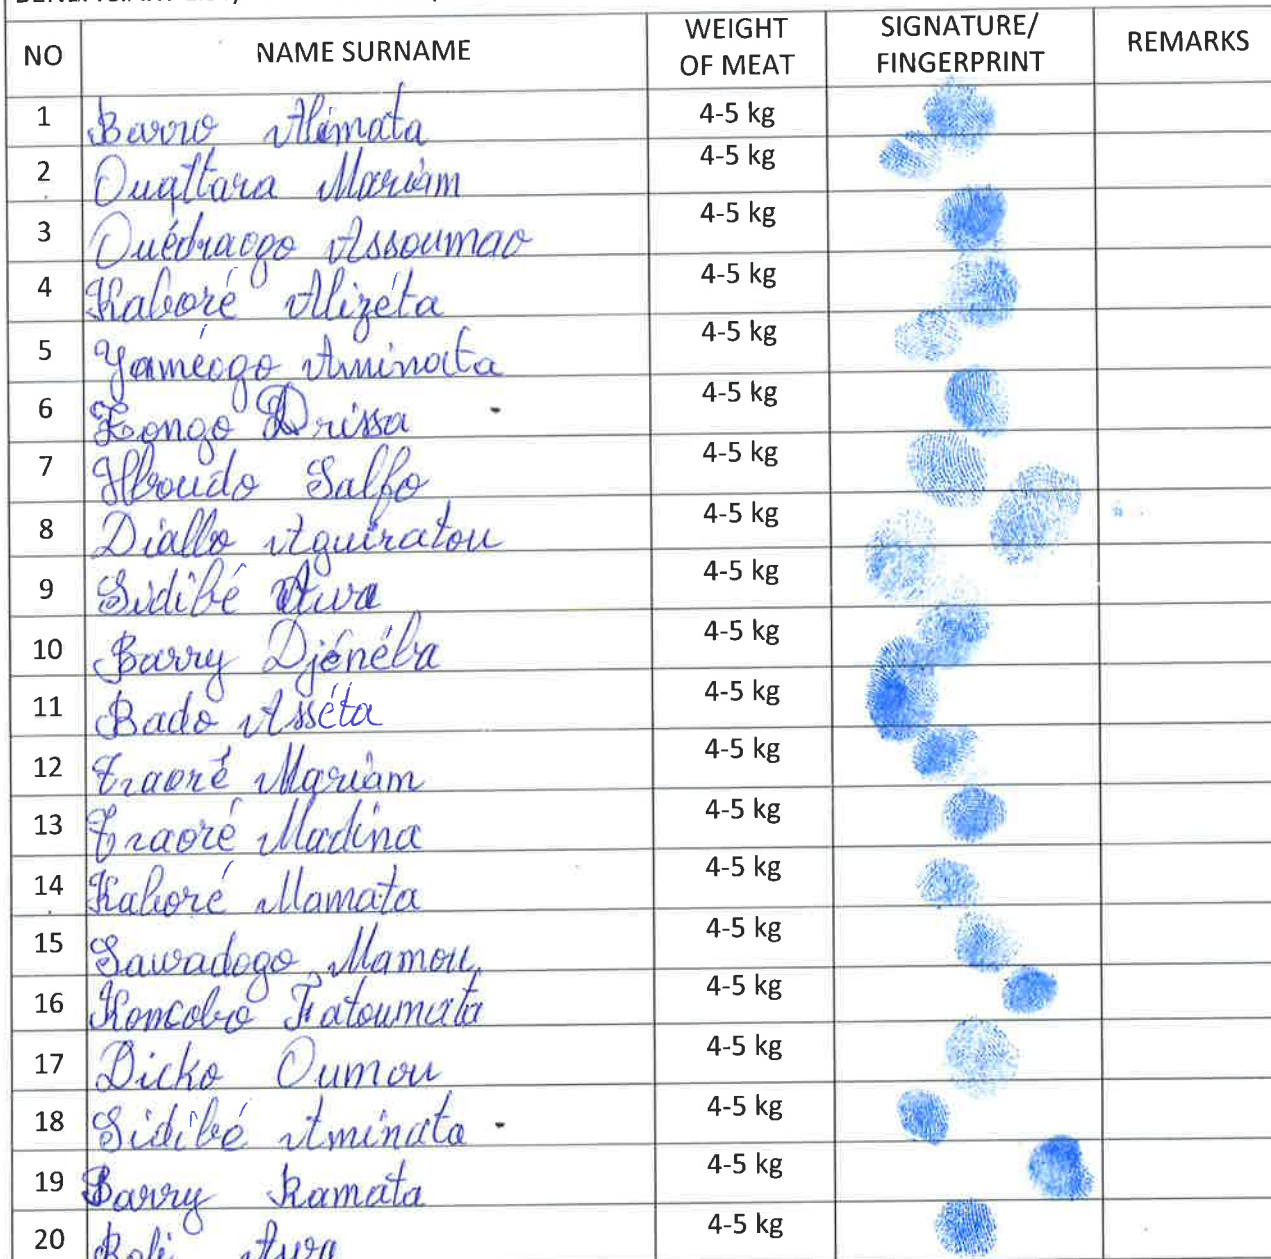 NO NAME SURNAME WEIGHT OF MEAT SIGNATURE/ FINGERPRINT REMARKS
1 Barro Alimata 4-5 kg
2 Ouattara Mariam 4-5 kg
3 Ouédraogo Assoumao 4-5 kg
4 Kaboré Alizéta 4-5 kg
5 Yaméogo Aminata 4-5 kg
6 Kongo Drissa 4-5 kg
7 Ilboudo Salfo 4-5 kg
8 Diallo Aguiratou 4-5 kg
9 Sidibé Awa 4-5 kg
10 Barry Djénéba 4-5 kg
11 Bado Asséta 4-5 kg
12 Traoré Mariam 4-5 kg
13 Traoré Madina 4-5 kg
14 Kaboré Mamata 4-5 kg
15 Sawadogo Mamou 4-5 kg
16 Koncobo Fatoumata 4-5 kg
17 Dicko Oumou 4-5 kg
18 Sidibé Aminata 4-5 kg
19 Barry Ramata 4-5 kg
20 Awa 4-5 kg